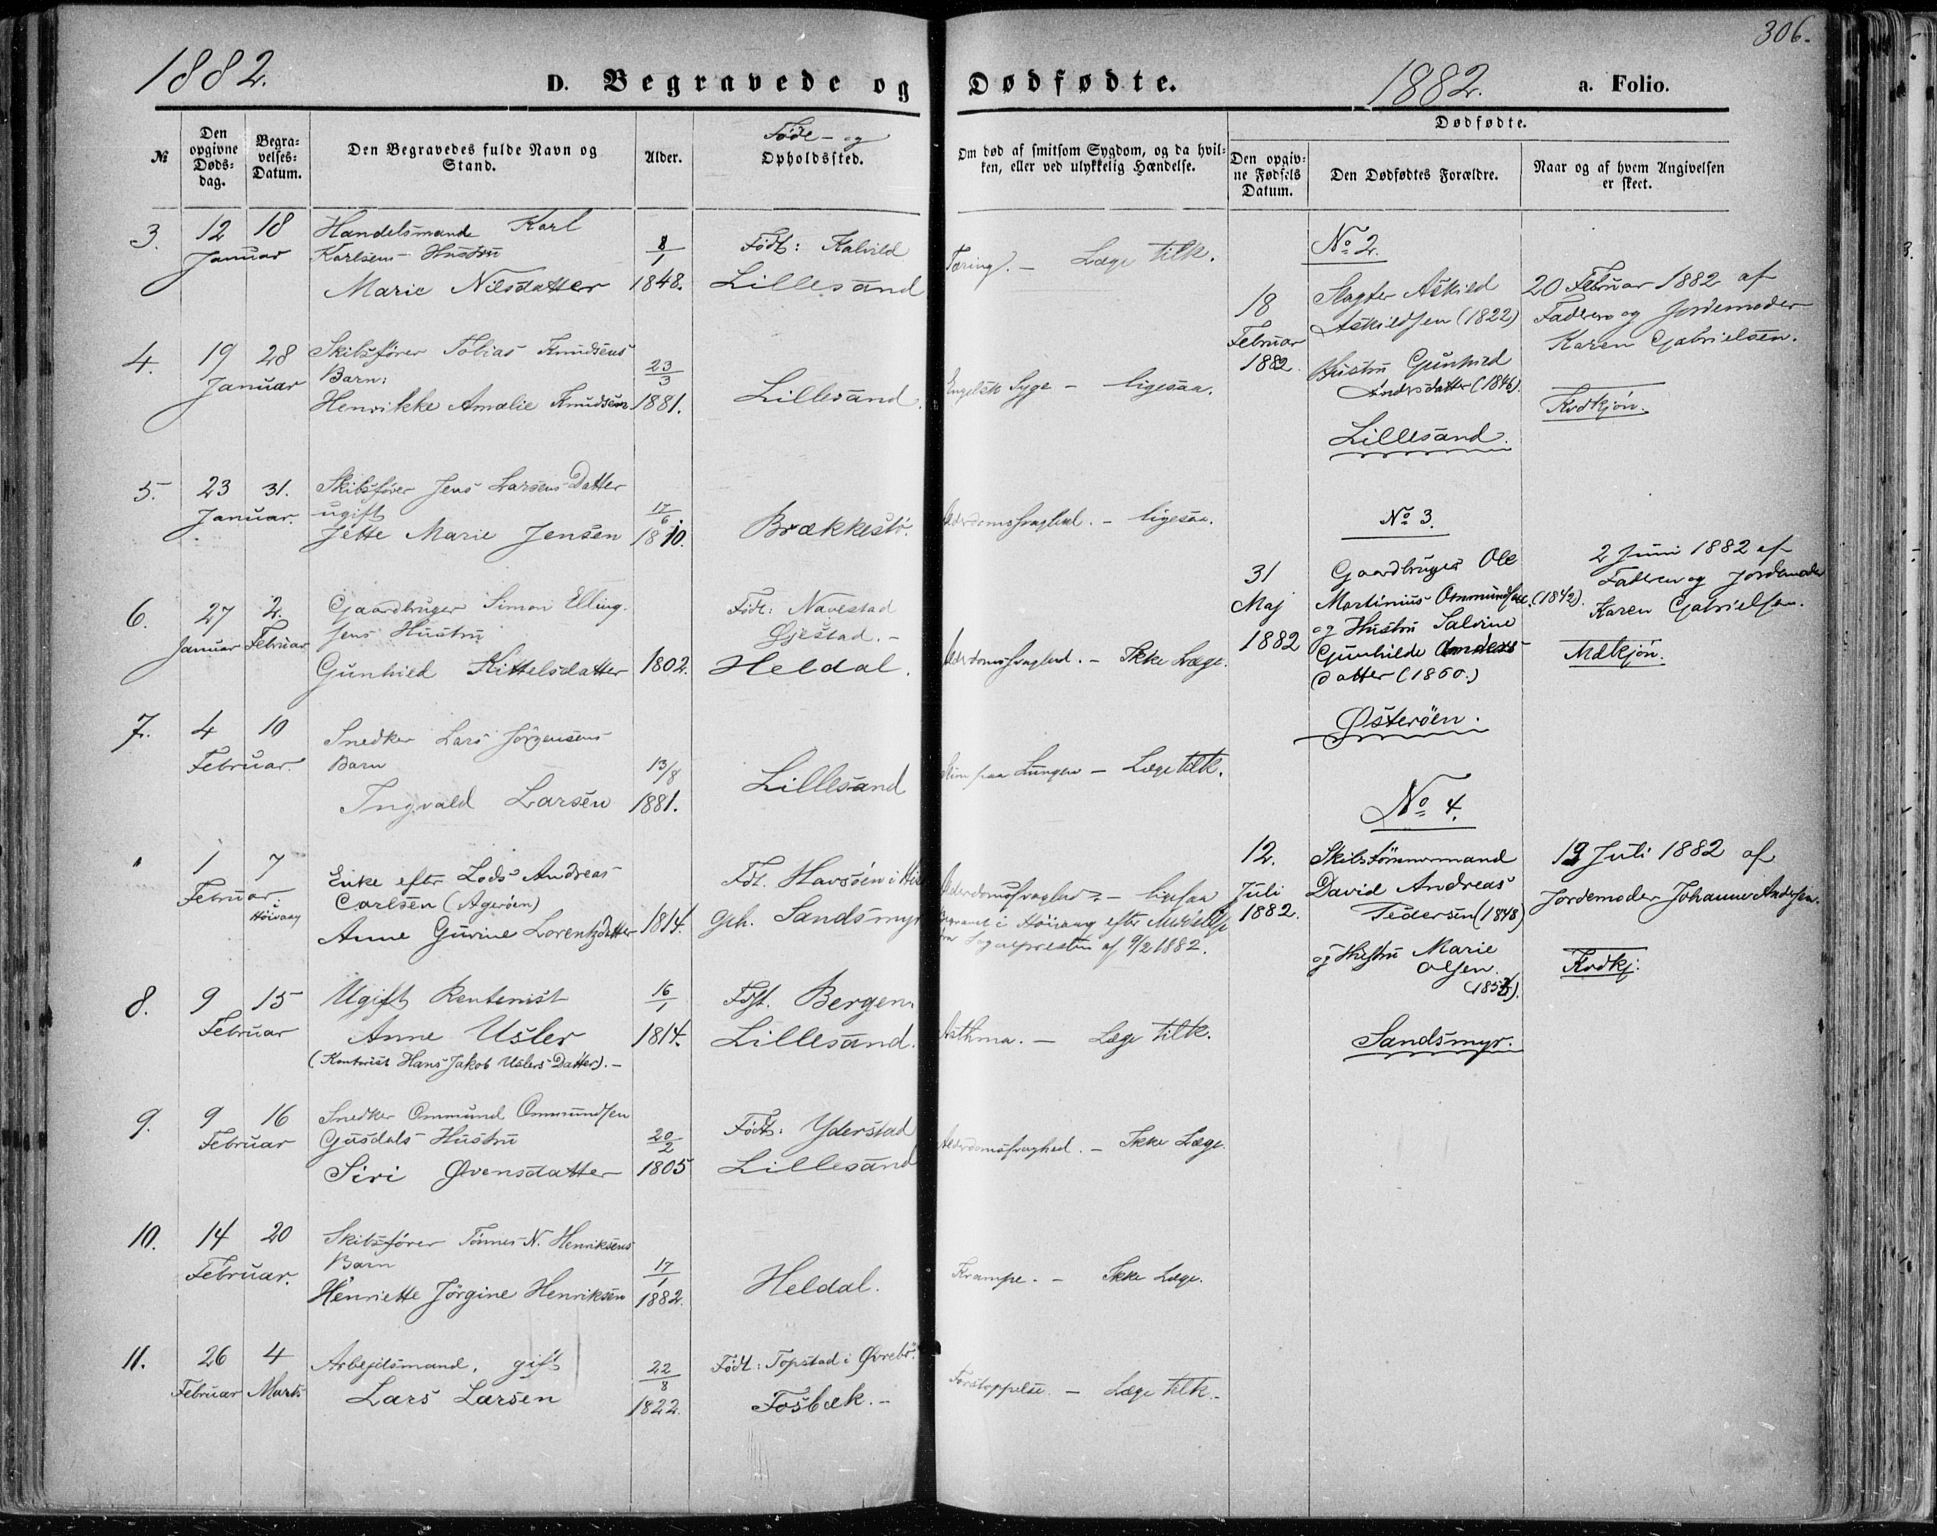 1882.
D. Begravede og Dødfødte.
1882.
a. Folio.
306.
№
Den opgivne Døds-dag.
Begra-velses-Datum.
Den Begravedes fulde Navn og Stand.
Alder.
Føde- og
Opholdssted.
Om død af smitsom Sygdom, og da hvil-ken, eller ved ulykkelig Hændelse.
Dødfødte.
Den opgiv-ne Fødsels Datum.
Den Dødfødtes Forældre.
Naar og af hvem Angivelsen er skeet.
3.
12 18
Januar
Handelsmand Karl
Karlsens Hustru
Marie Nilsdatter
8/1
1848.
Født: Kalvild
Lillesand
Tæring. — Læge tilk.
4.
19 28
Januar
Skibsfører Tobias Knudsens
Barn:
Henrikke Amalie Knudsen
23/3
1881.
Lillesand.
Engelsk Syge — ligesaa.
5.
23 31.
Januar.
Skibsfører Jens Larsens Datter
ugift
Jette Marie Jensen
17/6
1810.
Brækkestø.
Alderdomssvaghed. — ligesaa.
6.
27 2.
Januar Februar
Gaardbruger Simon Elling-
sens Hustru
Gunhild Kittelsdatter
1802.
Født: Navestad
Øjestad. —
Heldal.
Alderdomssvaghed. — Ikke Læge.
7.
4 10
Februar.
Snedker Lars Jørgensens
Barn
Ingvald Larsen
13/8
1881.
Lillesand
Slim paa Lungen — Læge tilk.
"
1 7
Februar i
Høivaag
Enke efter Lods Andreas
Carlsen (Agerøen)
Anne Gurine Lorentzdatter
1814.
Fdt. Havsøen i
Sandsmyr
Alderdomssvaghed — ligesaa
i Høivaag efter
Sognepresten af 9/2 1882.
8.
9 15
Februar
Ugift Rentenist
Anne Usler
(Kontorist Hans Jakob Uslers Datter). —
16/1
1814.
Født. Bergen.
Lillesand.
Asthma. — Læge tilk.
9.
9 16
Februar
Snedker Ommund Ommundsen
Gusdals Hustru
Siri Øvensdatter
20/2
1805
Født: Yderstad
Lillesand
Alderdomssvaghed. — Ikke Læge.
10.
14 20
Februar.
Skibsfører Tønnes N. Henriksens
Barn
Henriette Jørgine Henriksen
17/1
1882.
Heldal.
Krampe. — Ikke Læge.
11.
26 4
Februar Marts
Arbejdsmand, gift
Lars Larsen
22/8
1822.
Født: Topstad i Øvrebø.
Fosbæk. —
Forstoppelse. — Læge tilk. —
No 2.
18
Februar
1882.
Slagter Askild
Askildsen (1822)
Hustru Gunhild
Andersdatter (1846).
Lillesand.
20 Februar 1882 af
Faderen og Jordemoder
Karen Gabrielsen.
Kvdkjøn.
No 3.
31
Maj
1882
Gaardbruger Ole
Martinius Ommundsen (1842).
og Hustru Salvine
Gunhilde Anders
datter (1860.)
Østerøen.
2 Juni 1882 af
Faderen og Jordemoder
Karen Gabrielsen.
Mdkjøn.
No 4.
12.
Juli
1882.
Skibstømmermand
David Andreas
Pedersen (1848)
og Hustru Marie
Olsen.
Sandsmyr.
Juli 1882 af
Jordemoder Johanne Andersen.
Kvdkj: